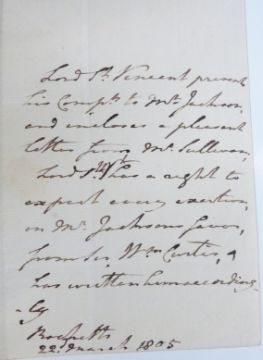 Lord St. Vincent presents
his Compts. to Mr. Jackson,
and incloses a pleasant
letter from Mr. Sullivan,
Lord St. V. has a right to
expect every exertion,
in Mr. Jacksons favor,
from Sir Wm. Curtis, &
has written him according
-ly
Rochetts
22d. March 1805